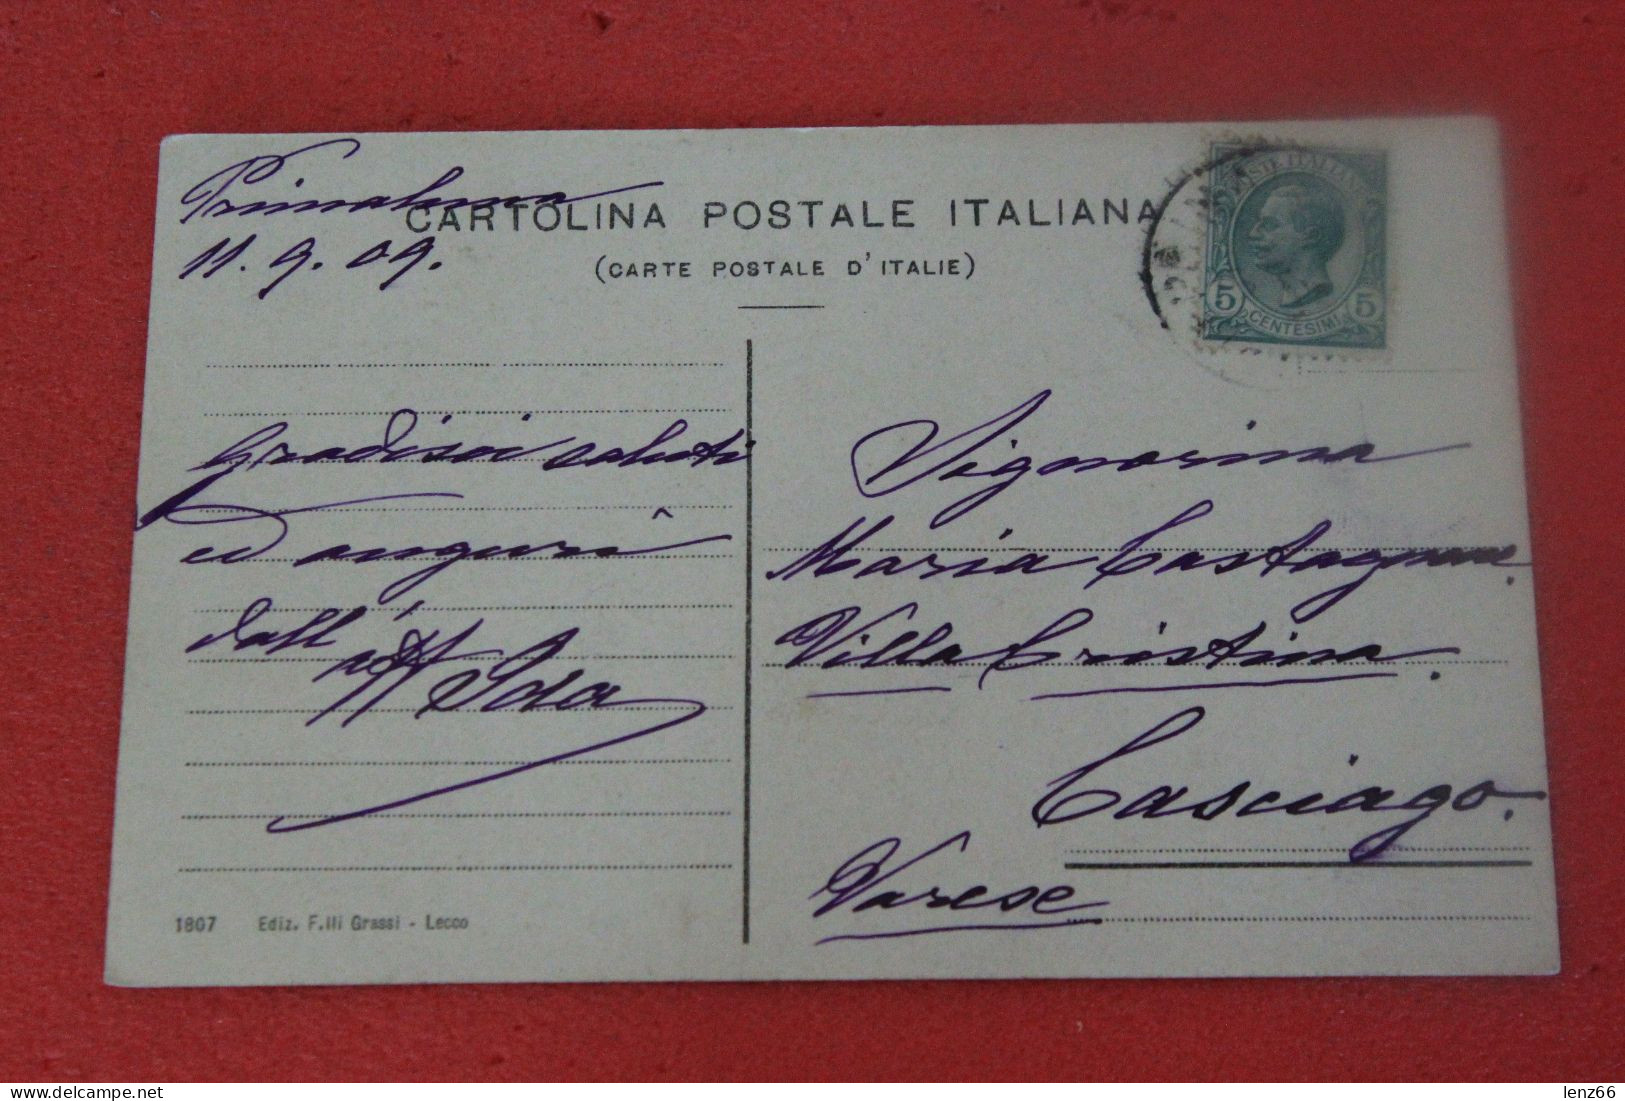 Primaluna
11.9.09.
CARTOLINA POSTALE ITALIANA
(CARTE POSTALE D'ITALIE)
POSTE ITALIANE
5 5
CENTESIMI
Gradisci saluti
ed auguri
dall'
Signorina
Maria Castagnone.
Villa Cristina.
Casciago.
Varese
1807 Ediz. F.lli Grassi - Lecco
delcampe.net
lenz66